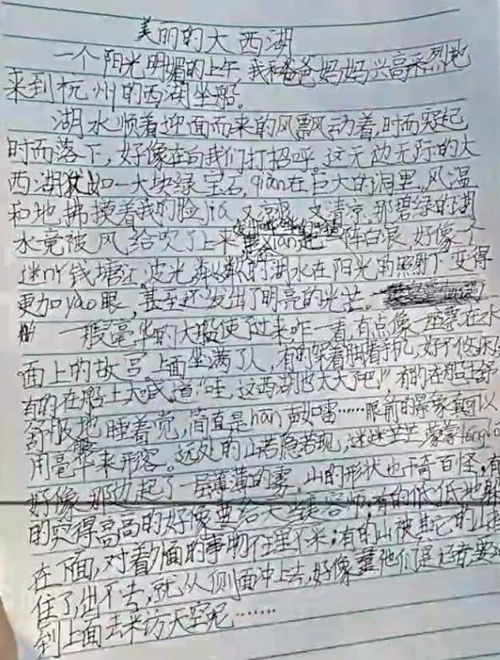 美丽的大西湖
一个阳光明媚的上午,我和爸爸妈妈兴高采烈地
来到杭州的西湖坐船。
湖水顺着迎面而来的风飘动着,时而突起
时而落下,好像在向我们打招呼。这无边无际的大
西湖犹如一大块绿宝石,qian在巨大的洞里,风温
和地拂摸着我的脸jia,又凉 又清凉,那碧绿的湖
水竟被风给吹了上来 xian起一阵白浪,好像一个
迷ni钱塘江,波光粼粼的湖水在阳光的照射下变得
更加yao眼,甚至还发出了明亮的光芒。
一艘豪华的大船使了过来,咋一看有点像一座幕在水
面上的故宫,上面坐满了人,有的
有的在船上大喊道“哇,这西湖也太大了吧!”有的
舒服地睡着觉,简直是han声如雷……眼前的景象真可以
用豪华来形容。远处的山若隐若现,迷迷茫茫
好像那边起了一层薄薄的雾,山的形状也千奇百怪,有
的突得高高的好像要给天当美容师,有的低低地
在下面,对着方面的事物不理不采;有的山被其它的山
住了,出不去,就从侧面冲上去,好像 他们
到上面去采访天空呢……